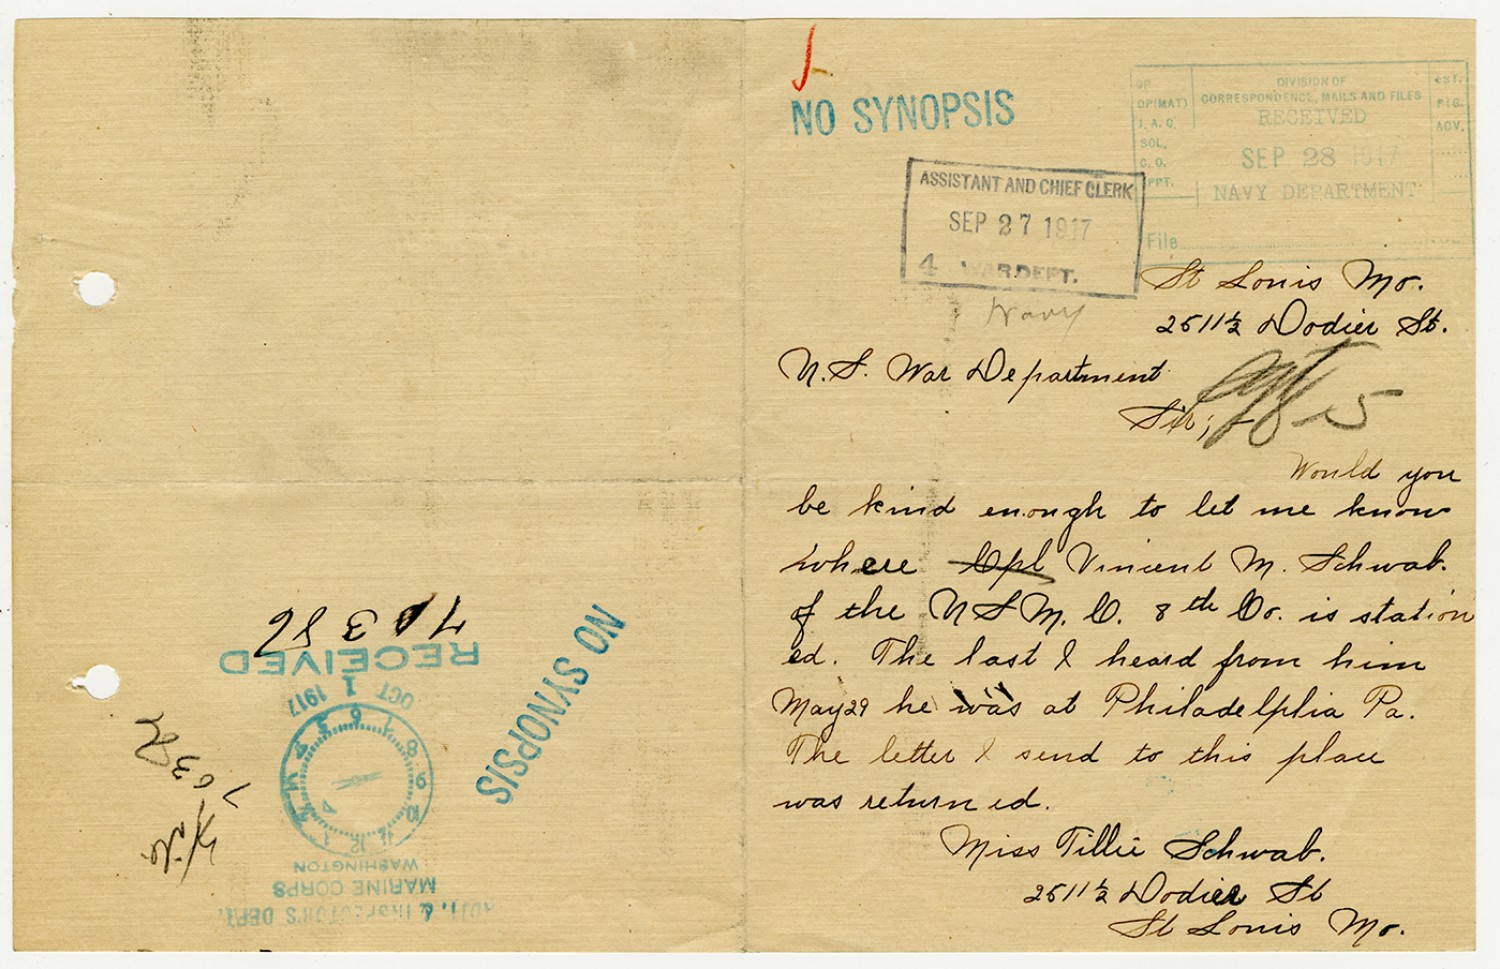 NO SYNOPSIS
OP.
OP(MAT)
J. A. G.
SOL.
C. O.
APPT.
DIVISION OF
CORRESPONDENCE, MAILS AND FILES
RECEIVED
SEP 28 1917
NAVY DEPARTMENT
EST.
PIG.
ADV.
File
ASSISTANT AND CHIEF CLERK
SEP 27 1917
4 WAR DEPT.
Navy
St Louis Mo.
2511½ Dodier St.
U.S. War Department
Sir; -
15
Would you
be kind enough to let me know
where Cpl Vincent M. Schwab.
of the U S M. C. 8th Co. is station
ed. The last I heard from him
May 29 he was at Philadelphia Pa.
The letter I send to this place
was returned.
Miss Tillie Schwab.
2511½ Dodier St
St Louis Mo.
NO SYNOPSIS
ADJT. & INSPECTOR'S DEPT.
MARINE CORPS
WASHINGTON
12 1 2 3 4 5 6 7 8 9 10 11
OCT 1 1917
RECEIVED
70386
File